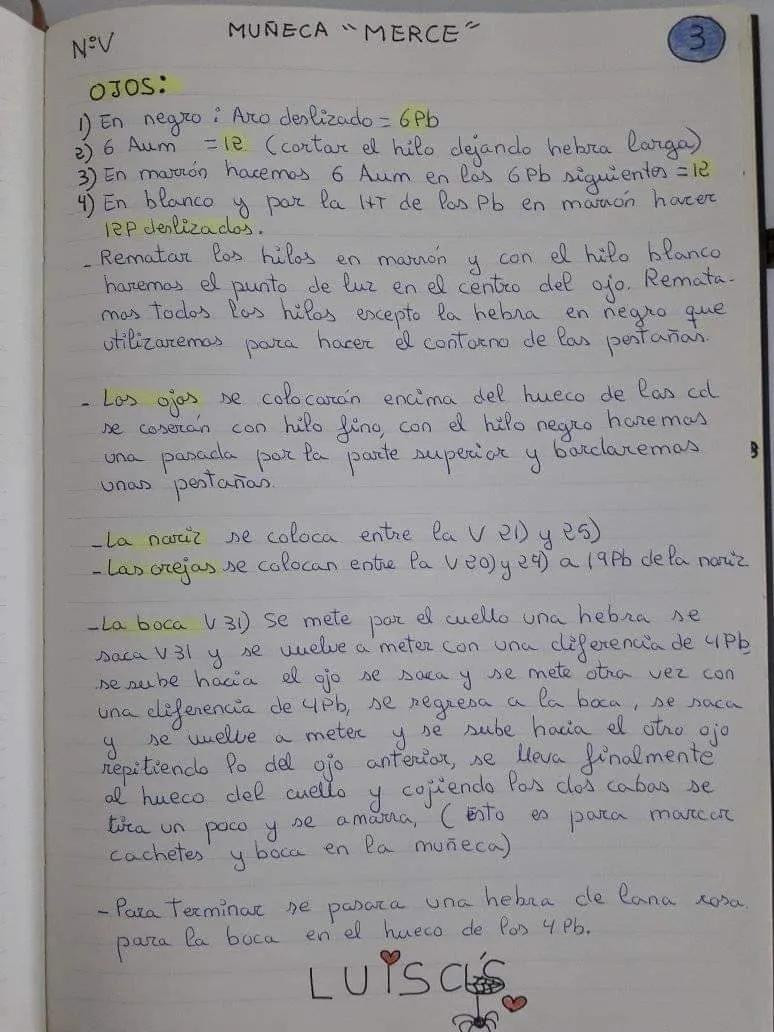 NºV
MUÑECA "MERCE"
3
OJOS:
1) En negro: Aro deslizado = 6Pb
2) 6 Aum = 12 (cortar el hilo dejando hebra larga)
3) En marrón hacemos 6 Aum en los 6Pb siguientes = 12
4) En blanco y por la HT de los Pb en marrón hacer
12P deslizados.
- Rematar los hilos en marrón y con el hilo blanco
haremos el punto de luz en el centro del ojo. Remata-
mos todos los hilos excepto la hebra en negro que
utilizaremos para hacer el contorno de las pestañas.
- Los ojos se colocarán encima del hueco de las cd
se coserán con hilo fino, con el hilo negro haremos
una pasada por la parte superior y bordaremos
unas pestañas.
- La nariz se coloca entre la V 21) y 25)
- Las orejas se colocan entre la V 20) y 24) a 19Pb de la nariz
- La boca V 31) Se mete por el cuello una hebra se
saca V31 y se vuelve a meter con una diferencia de 4Pb
se sube hacia el ojo se saca y se mete otra vez con
una diferencia de 4Pb, se regresa a la boca, se saca
y se vuelve a meter y se sube hacia el otro ojo
repitiendo lo del ojo anterior, se lleva finalmente
al hueco del cuello y cojiendo los dos cabos se
tira un poco y se amarra, (Esto es para marcar
cachetes y boca en la muñeca)
- Para Terminar se pasara una hebra de lana rosa
para la boca en el hueco de los 4 Pb.